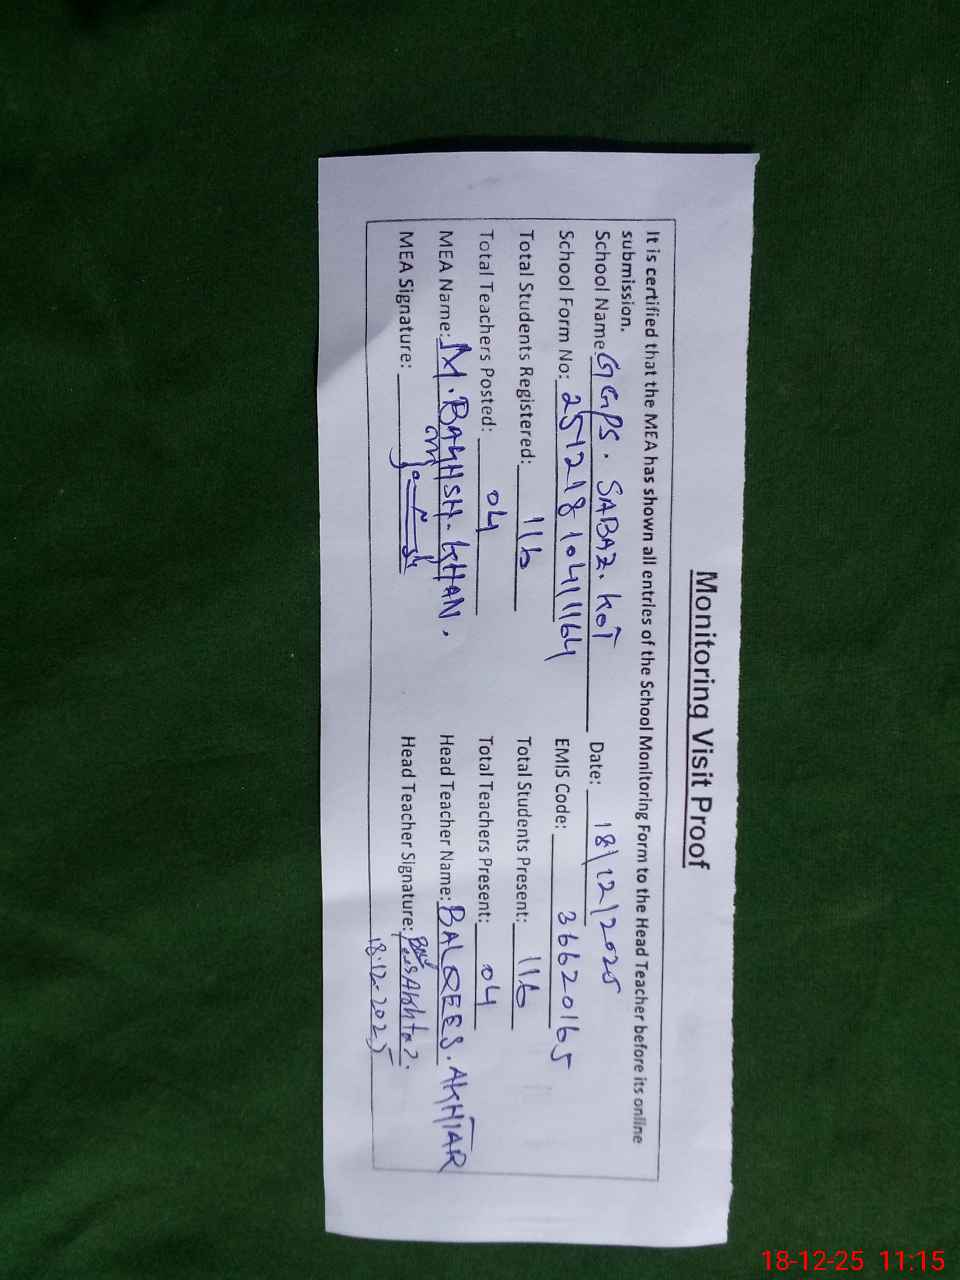 Monitoring Visit Proof
It is certified that the MEA has shown all entries of the School Monitoring Form to the Head Teacher before its online
submission.
School Name: GGPS. SABAZ. KOT Date: 18/12/2025
School Form No: 251218104111164 EMIS Code: 36620165
Total Students Registered: 116 Total Students Present: 116
Total Teachers Posted: 04 Total Teachers Present: 04
MEA Name: M. BAKHSH. KHAN. Head Teacher Name: BALQEES. AKHTAR
MEA Signature: Head Teacher Signature: Akhtar.
18.12.2025
18-12-25 11:15